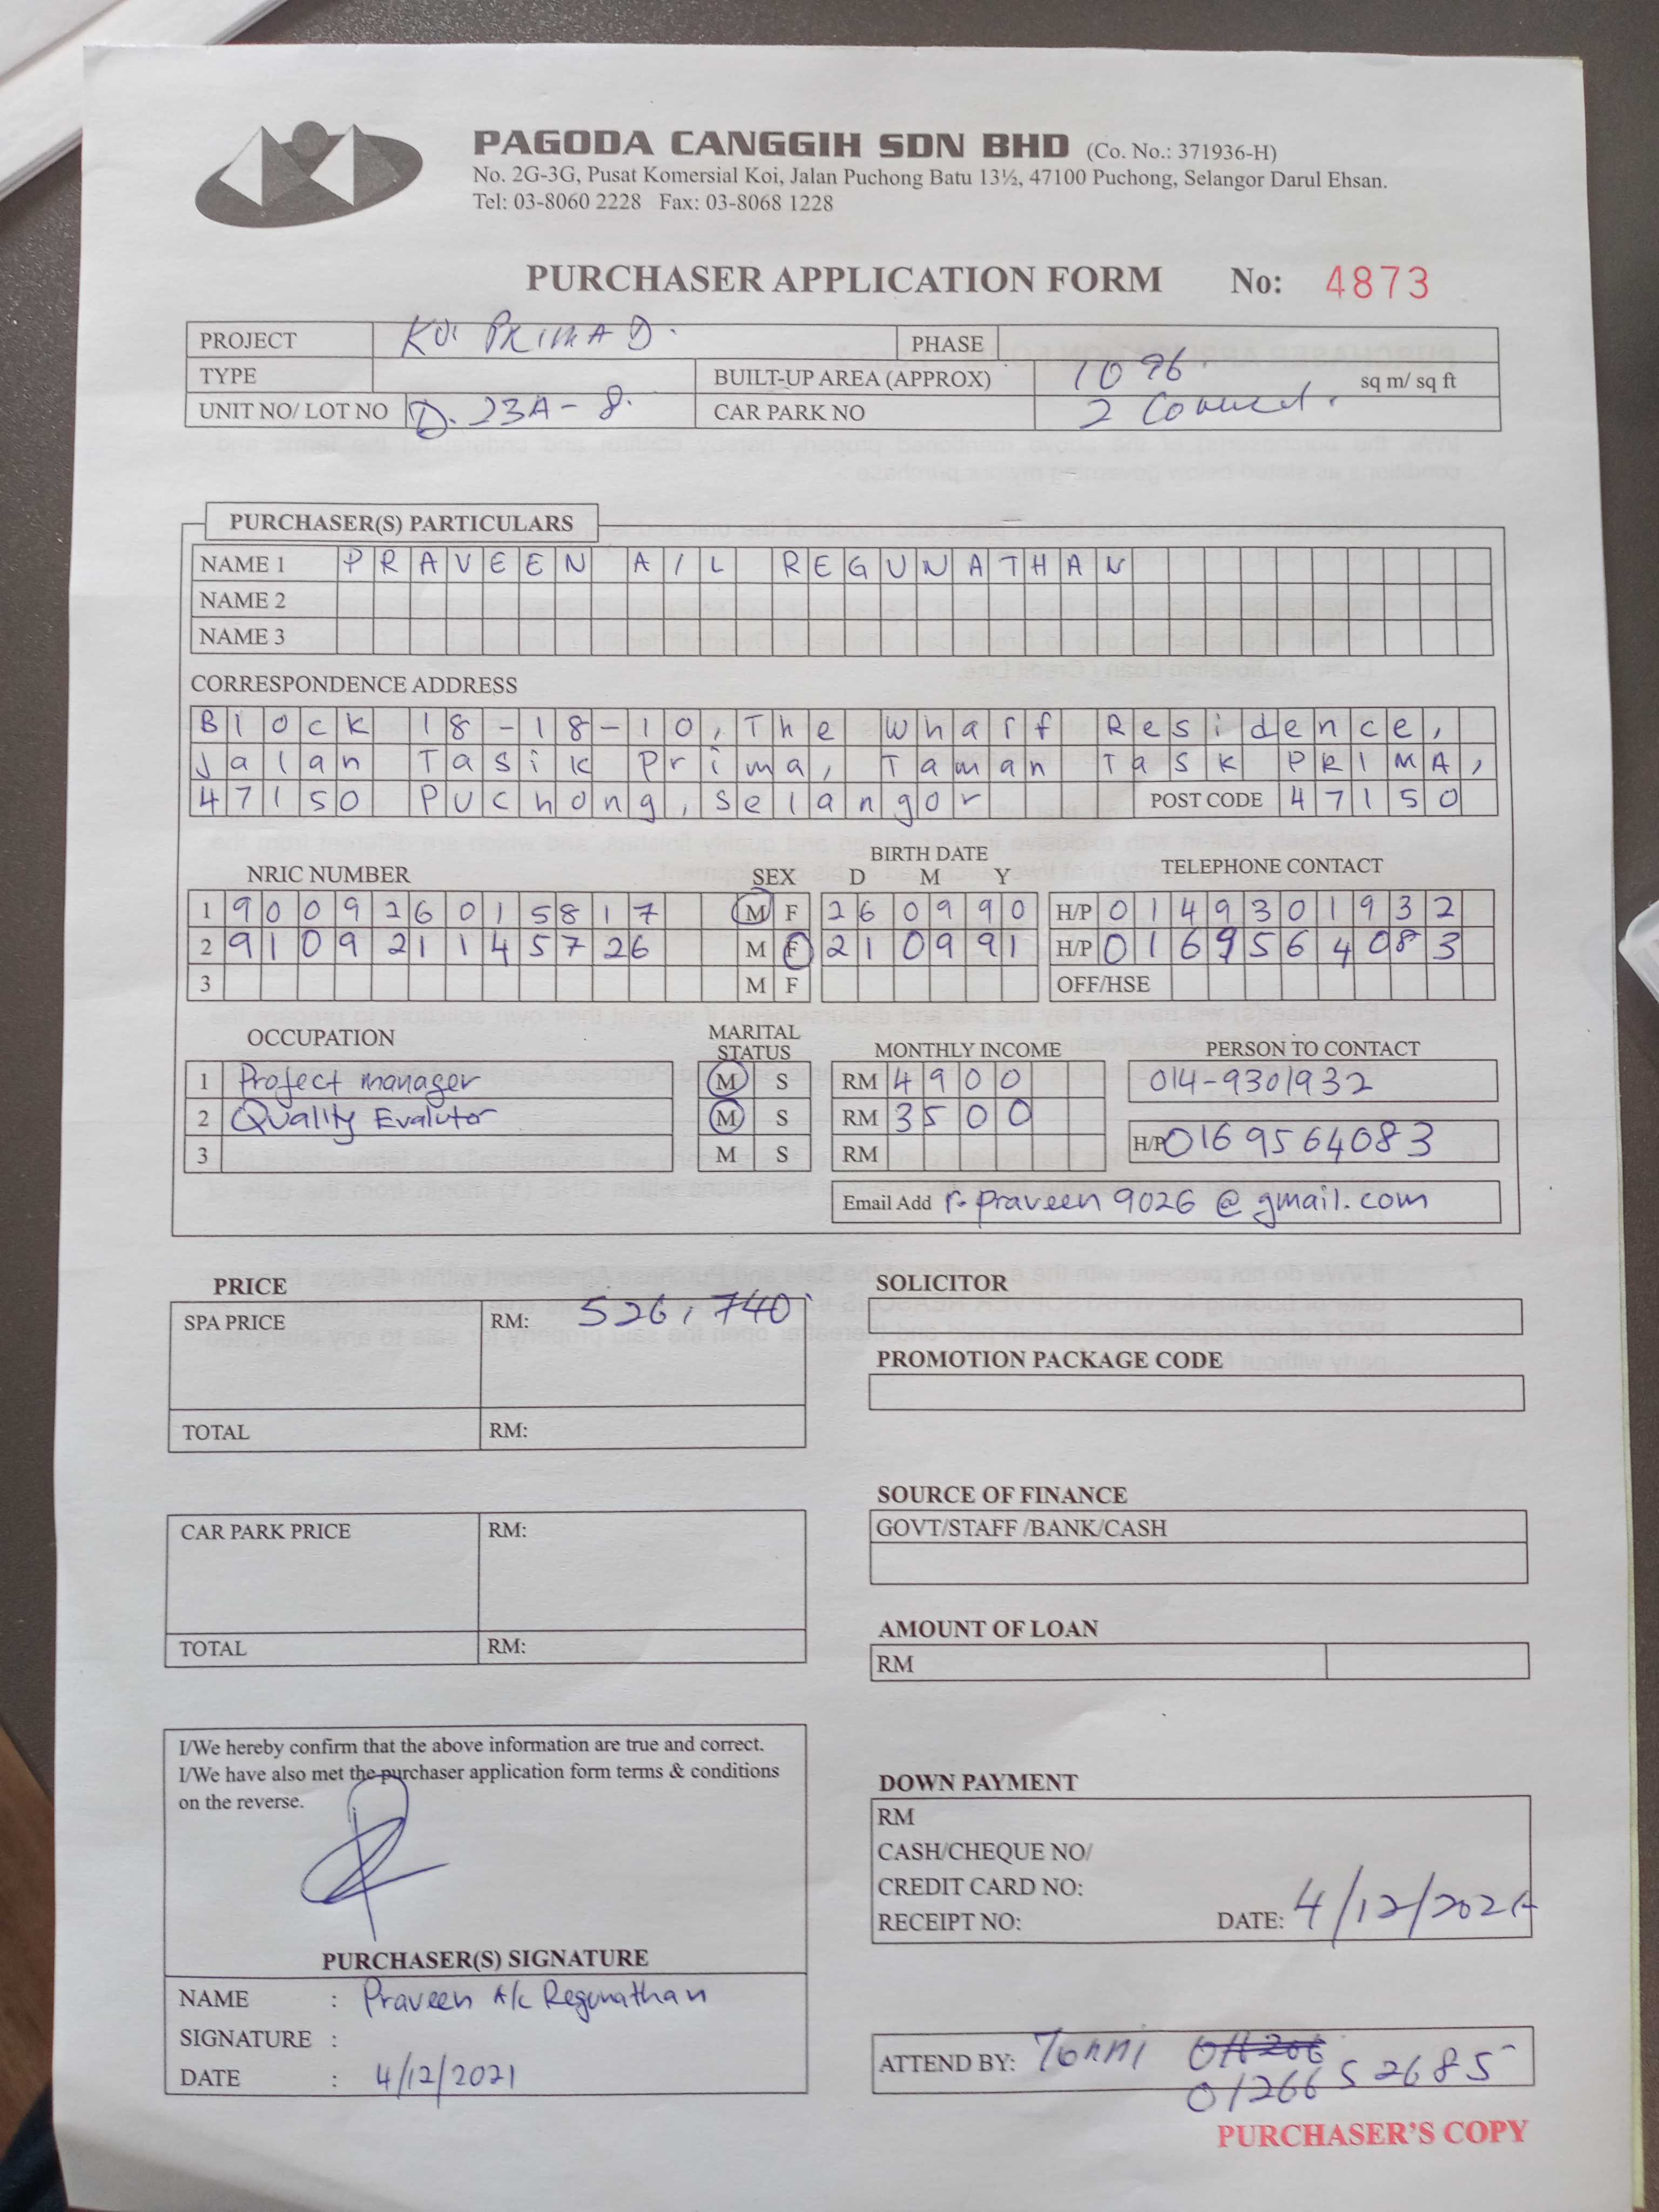 PAGODA CANGGIH SDN BHD (Co. No.: 371936-H)
No. 2G-3G, Pusat Komersial Koi, Jalan Puchong Batu 13½, 47100 Puchong, Selangor Darul Ehsan.
Tel: 03-8060 2228 Fax: 03-8068 1228
PURCHASER APPLICATION FORM No: 4873
PROJECT KOI PRIMA D. PHASE
TYPE BUILT-UP AREA (APPROX) 1096 sq m/ sq ft
UNIT NO/ LOT NO D. 23A-8. CAR PARK NO 2
PURCHASER(S) PARTICULARS
NAME 1 PRAVEEN A/L REGUNATHAN
NAME 2
NAME 3
CORRESPONDENCE ADDRESS
Block 18-18-10, The Wharf Residence,
Jalan Tasik Prima, Taman TASK PRIMA,
47150 Puchong, Selangor POST CODE 47150
BIRTH DATE
NRIC NUMBER SEX D M Y TELEPHONE CONTACT
1 900926015817 M F 260990 H/P 0149301932
2 910921145726 M F 210991 H/P 0169564083
3 M F OFF/HSE
OCCUPATION MARITAL STATUS MONTHLY INCOME PERSON TO CONTACT
1 Project manager M S RM 4900 014-9301932
2 Quality Evalutor M S RM 3500
3 M S RM H/P 0169564083
Email Add r.praveen9026@gmail.com
PRICE SOLICITOR
SPA PRICE RM: 526,740
PROMOTION PACKAGE CODE
TOTAL RM:
SOURCE OF FINANCE
CAR PARK PRICE RM: GOVT/STAFF /BANK/CASH
AMOUNT OF LOAN
TOTAL RM: RM
I/We hereby confirm that the above information are true and correct.
I/We have also met the purchaser application form terms & conditions
on the reverse.
DOWN PAYMENT
RM
CASH/CHEQUE NO/
CREDIT CARD NO:
RECEIPT NO: DATE: 4/12/2021
PURCHASER(S) SIGNATURE
NAME : Praveen A/L Regunathan
SIGNATURE :
DATE : 4/12/2021
ATTEND BY: Tonni
0126652685
PURCHASER'S COPY